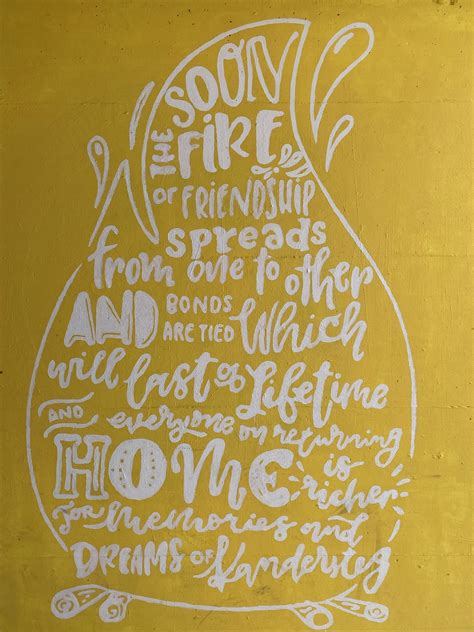 SOON
THE FIRE
OF FRIENDSHIP
spreads
from one to other
AND BONDS ARE TIED Which
will last a Lifetime
AND everyone on returning
HOME is richer
for memories and
DREAMS OF Kandersteg